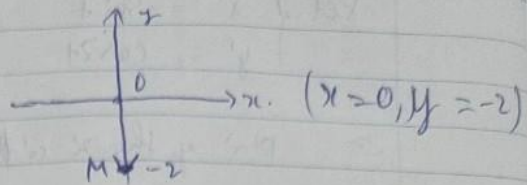 y
0
x. (x=0, y=-2)
M -2